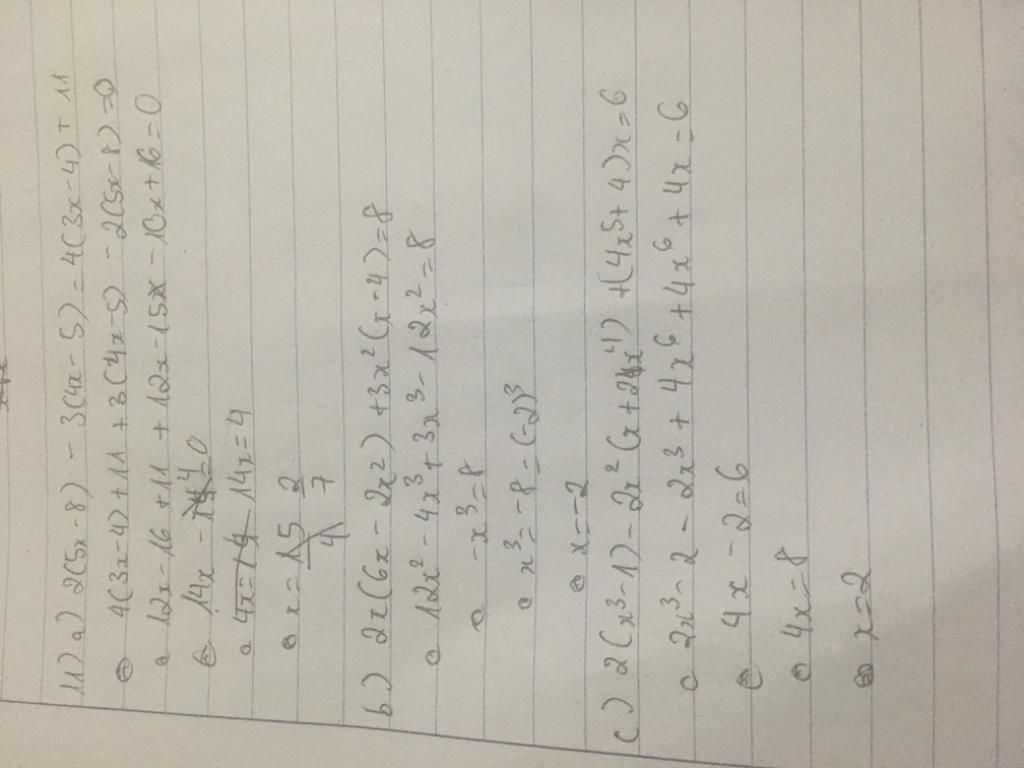 11) a) 2(5x-8) - 3(4x-5) = 4(3x-4) + 11
4(3x-4)+11+3(4x-5) - 2(5x-8)=0
12x-16+11+12x-15-10x+16=0
14x - 4=0
14x=4
x = 2/7
b) 2x(6x-2x²)+3x²(x-4)=8
12x²-4x³+3x³-12x²=8
-x³=8
x³=-8=(-2)³
x=-2
c) 2(x³-1)-2x²(x+2x⁴)+(4x⁵+4)x=6
2x³-2-2x³+4x⁶+4x⁶+4x=6
4x-2=6
4x=8
x=2